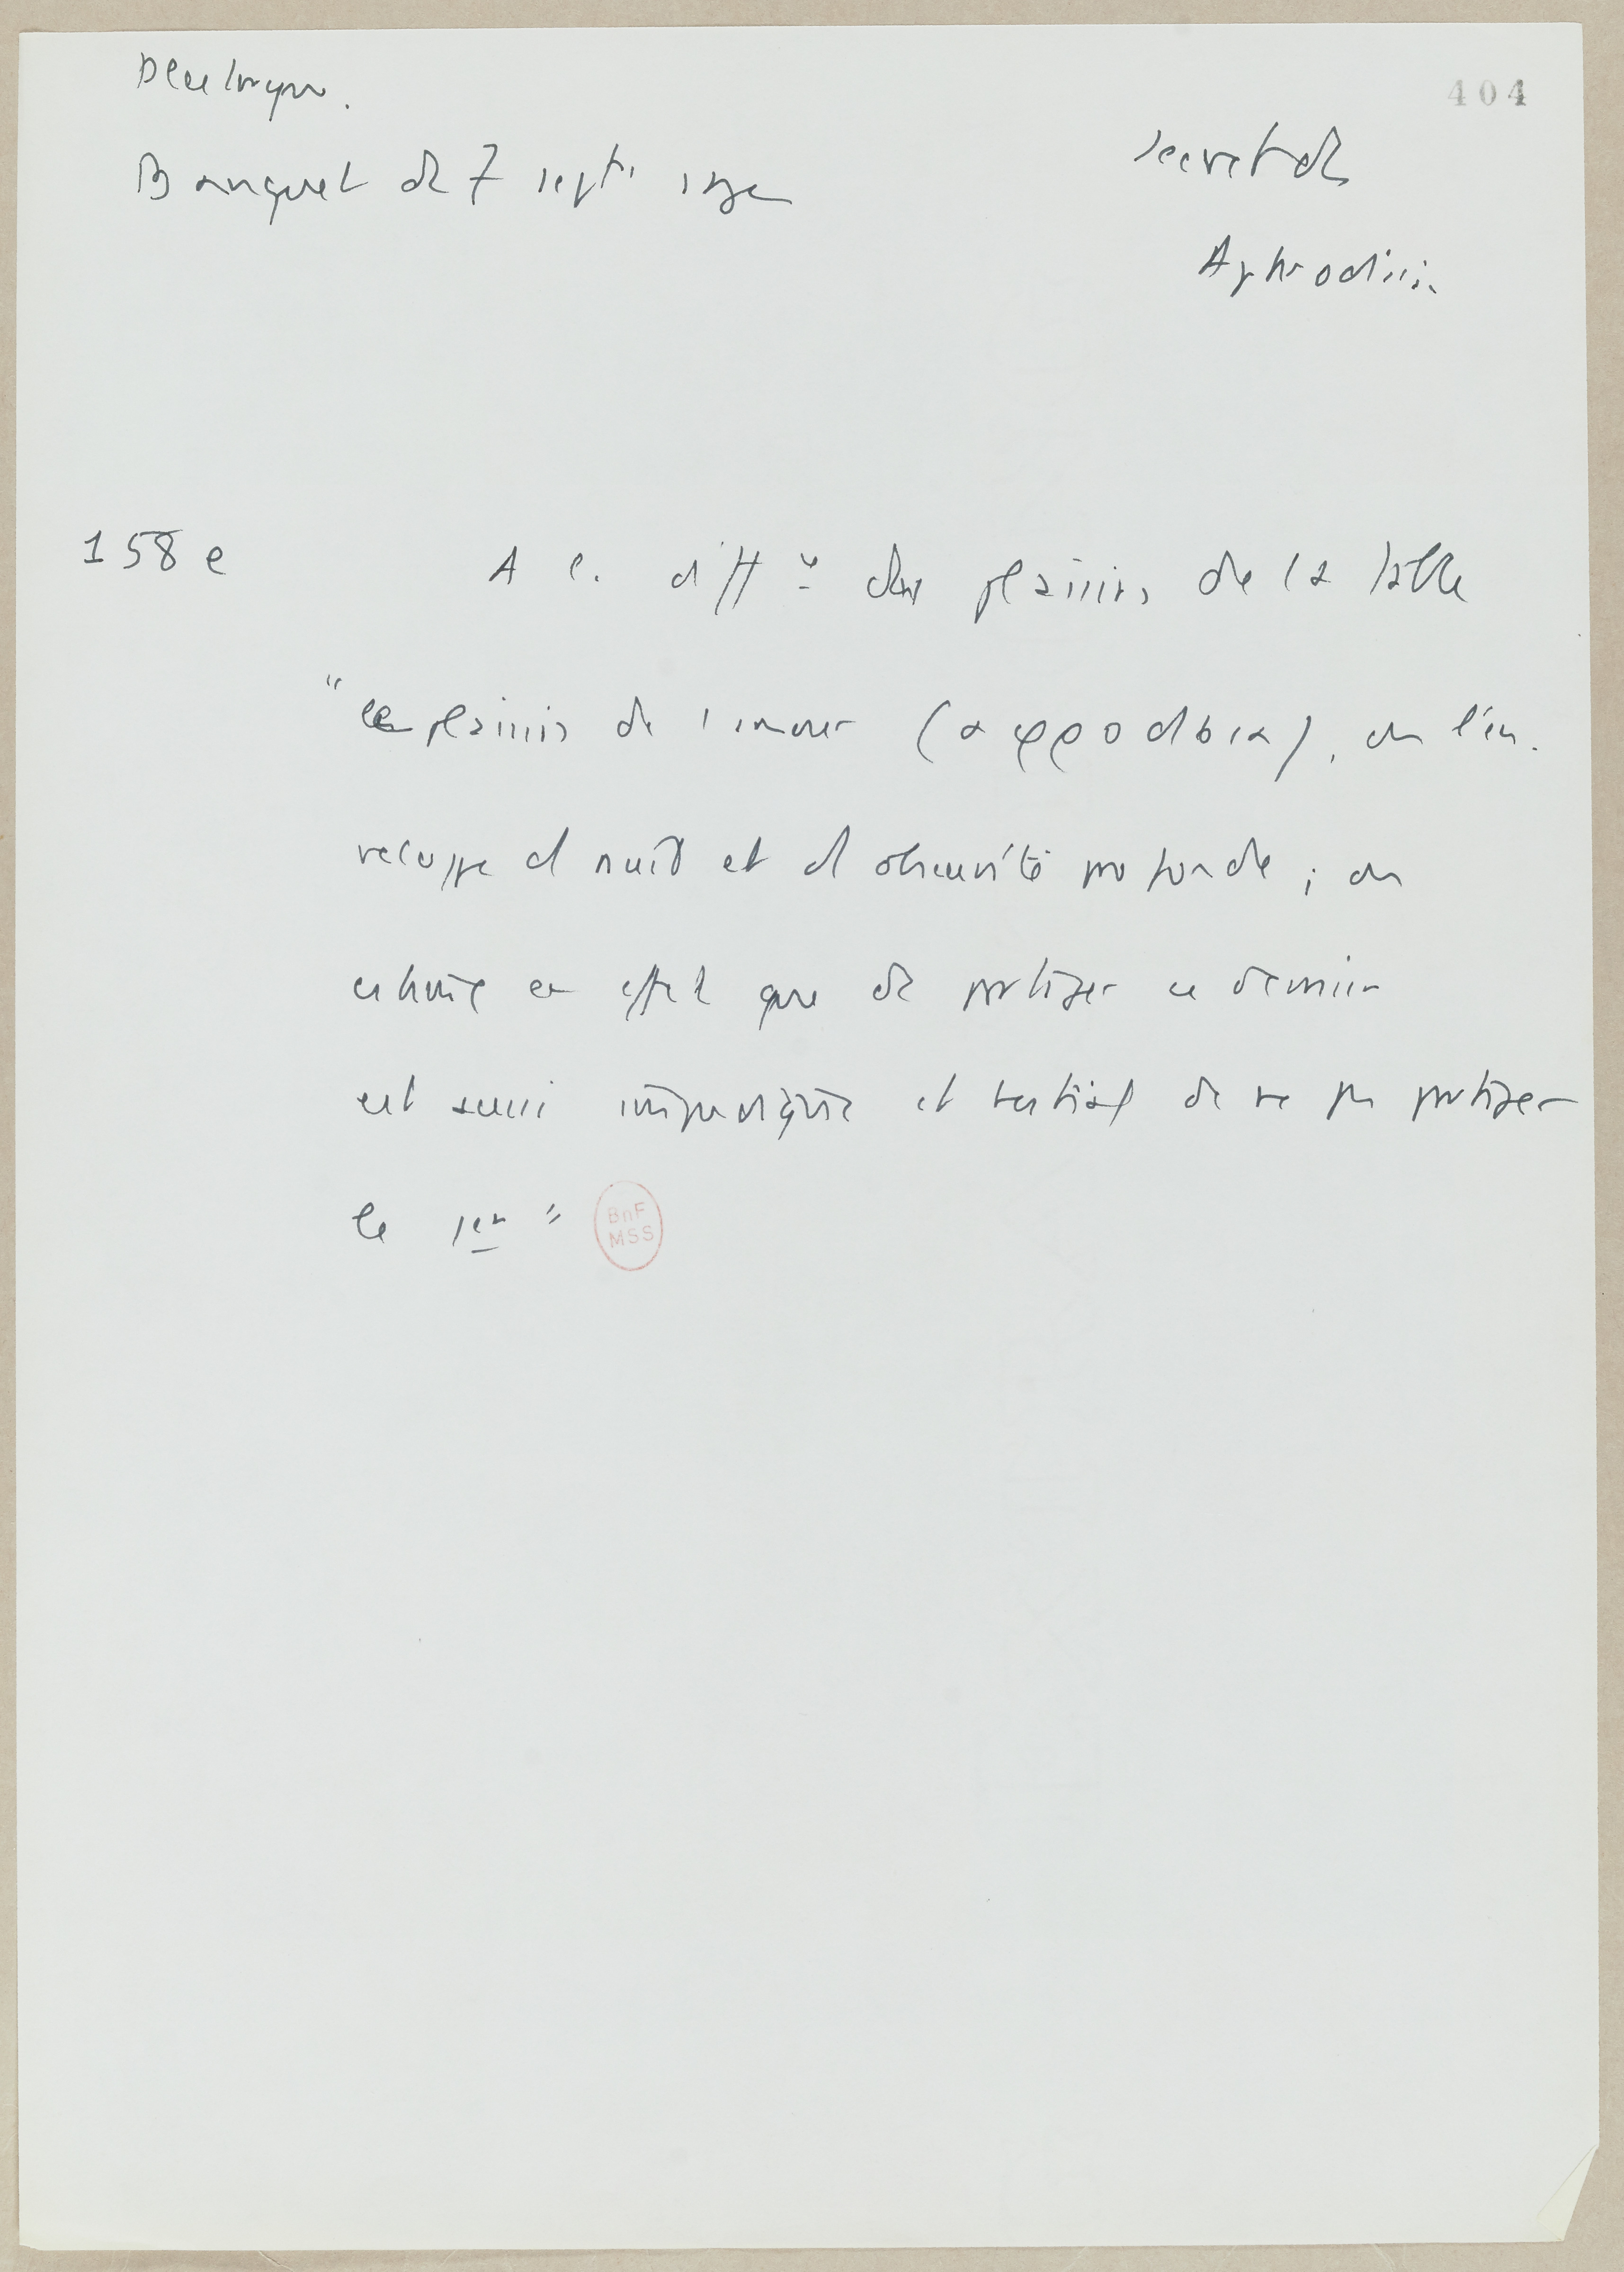 Plutarque.
404
Banquet des 7 sept. sages
secret des
Aphrodisia
158 e
A l. diffce des plaisirs de la table
"les plaisirs de l'amour (αφροδισια), on l'en.
veloppe de nuit et d'obscurité profonde ; on
estime en effet que de partager ce dernier
est aussi impudique et bestial de ne pas partager
le 1er"
BnF
MSS